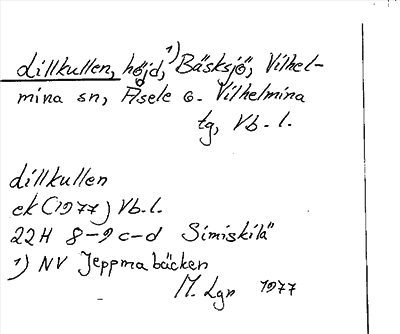 Lillkullen, höjd, 1) Bäsksjö, Vilhel-
mina sn, Åsele o. Vilhelmina
tg, Vb. l.
lillkullen
ek (1977) Vb. l.
22H 8-9 c-d Simiskilä
1) NV Jeppmabäcken
M. Lgn 1977